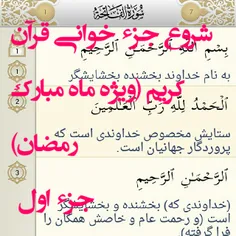 سُورَةُ الفَاتِحَة
شروع جزء خوانی قرآن
1
بِسْمِ اللَّهِ الرَّحْمَٰنِ الرَّحِيمِ
به نام خداوند بخشنده بخشایشگر
کریم (ویژه ماه مبارک
2
الْحَمْدُ لِلَّهِ رَبِّ الْعَالَمِينَ
ستایش مخصوص خداوندی است که
پروردگار جهانیان است.
رمضان)
3
الرَّحْمَٰنِ الرَّحِيمِ
جزء اول
خداوندی که) بخشنده و بخشایشگر)
است (و رحمت عام و خاصش همگان را
فرا گرفته)